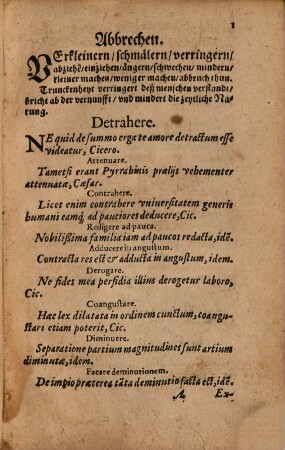 1
Abbrechen.
VErkleinern/ schmälern/ verringern/
abziehẽ/ einziehen/ ängern/ schwechen/ mindern/
kleiner machen/ weniger machen/ abbruch thun.
Trunckenheyt verringert deß menschen verstandt/
bricht ab der vernunfft/ vnd mindert die zeytliche Na-
rung.
Detrahere.
NE quid de summo erga te amore detractum esse
videatur, Cicero.
Attenuare.
Tametsi erant Pyrrabinis prælijs vehementer
attenuatæ, Cæsar.
Contrahere.
Licet enim contrahere vniuersitatem generis
humani eamq́; ad pauciores deducere, Cic.
Redigere ad pauca.
Nobilißima familia iam ad paucos redacta, idẽ.
Adducere in angustum.
Contracta res est & adducta in angustum, idem.
Derogare.
Ne fides mea perfidia illius derogetur laboro,
Cic.
Coangustare.
Hæc lex dilatata in ordinem cunctum, coangu-
stari etiam poterit, Cic.
Diminuere.
Separatione partium magnitudines sunt artium
diminutæ, idem.
Facere deminutionem.
De impio præterea tãta deminutio facta est, idẽ.
A Ex-